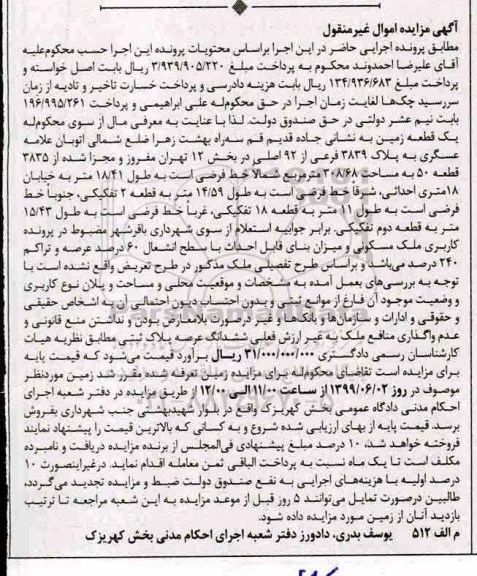 آگهی مزایده اموال غیرمنقول
مطابق پرونده اجرایی حاضر در این اجرا براساس محتویات پرونده این اجرا حسب محکوم‌علیه
آقای علیرضا احمدوند محکوم به پرداخت مبلغ ۳/۹۳۹/۹۰۵/۲۲۰ ریال بابت اصل خواسته و
پرداخت مبلغ ۱۳۴/۹۳۶/۶۸۳ ریال بابت هزینه دادرسی و پرداخت خسارت تاخیر و تادیه از زمان
سررسید چک‌ها لغایت زمان اجرا در حق محکوم‌له علی ابراهیمی و پرداخت ۱۹۶/۹۹۵/۲۶۱
بابت نیم عشر دولتی در حق صندوق دولت. لذا با عنایت به معرفی مال از سوی محکوم‌له
یک قطعه زمین به نشانی جاده قدیم قم سه‌راه بهشت زهرا ضلع شمالی اتوبان علامه
عسگری به پلاک ۳۸۳۹ فرعی از ۹۲ اصلی در بخش ۱۲ تهران مفروز و مجزا شده از ۳۸۳۵
قطعه ۵۰ به مساحت ۲۰۸/۶۸ مترمربع شمالاً خط فرضی است به طول ۱۸/۴۱ متر به خیابان
۱۸متری احداثی، شرقاً خط فرضی است به طول ۱۴/۵۹ متر به قطعه ۲ تفکیکی، جنوباً خط
فرضی است به طول ۱۰ متر به قطعه ۱۸ تفکیکی، غرباً خط فرضی است به طول ۱۵/۴۳
متر به قطعه دوم تفکیکی. برابر جوابیه استعلام از سوی شهرداری باقرشهر مضبوط در پرونده
کاربری ملک مسکونی و میزان بنای قابل احداث با سطح اشغال ۶۰ درصد عرصه و تراکم
۲۴۰ درصد می‌باشد و براساس طرح تفصیلی ملک مذکور در طرح تعریض واقع نشده است با
توجه به بررسی‌های بعمل آمده به مشخصات و موقعیت محلی و مساحت و پلان نوع کاربری
و وضعیت موجود آن فارغ از موانع ثبتی و بدون احتساب دیون احتمالی آن به اشخاص حقیقی
و حقوقی و ادارات و سازمان‌ها و بانک‌ها و غیر درصورت بلامعارض بودن و نداشتن منع قانونی و
عدم واگذاری منافع ملک به غیر ارزش فعلی ششدانگ عرصه پلاک ثبتی مطابق نظریه هیات
کارشناسان رسمی دادگستری ۳۱/۰۰۰/۰۰۰/۰۰۰ ریال برآورد قیمت می‌شود که قیمت پایه
برای مزایده است تقاضای محکوم‌له برای مزایده زمین تعرفه شده مقرر شد زمین موردنظر
موصوف در روز ۱۳۹۹/۰۶/۰۲ از ساعت ۱۱/۰۰ الی ۱۲/۰۰ از طریق مزایده در دفتر شعبه اجرای
احکام مدنی دادگاه عمومی بخش کهریزک واقع در بلوار شهیدبهشتی جنب شهرداری بفروش
برسد. قیمت پایه از بهای ارزیابی شده شروع و به کسانی که بالاترین قیمت را پیشنهاد نمایند
فروخته خواهد شد، ۱۰ درصد مبلغ پیشنهادی فی‌المجلس از برنده مزایده دریافت و نامبرده
مکلف است تا یک ماه نسبت به پرداخت الباقی ثمن معامله اقدام نماید. درغیراینصورت ۱۰
درصد اولیه با هزینه‌های اجرایی به نفع صندوق دولت ضبط و مزایده تجدید می‌گردد،
طالبین درصورت تمایل می‌توانند ۵ روز قبل از موعد مزایده به این شعبه مراجعه تا ترتیب
بازدید آنان از زمین مورد مزایده داده شود.
م الف ۵۱۲ یوسف بدری، دادورز دفتر شعبه اجرای احکام مدنی بخش کهریزک